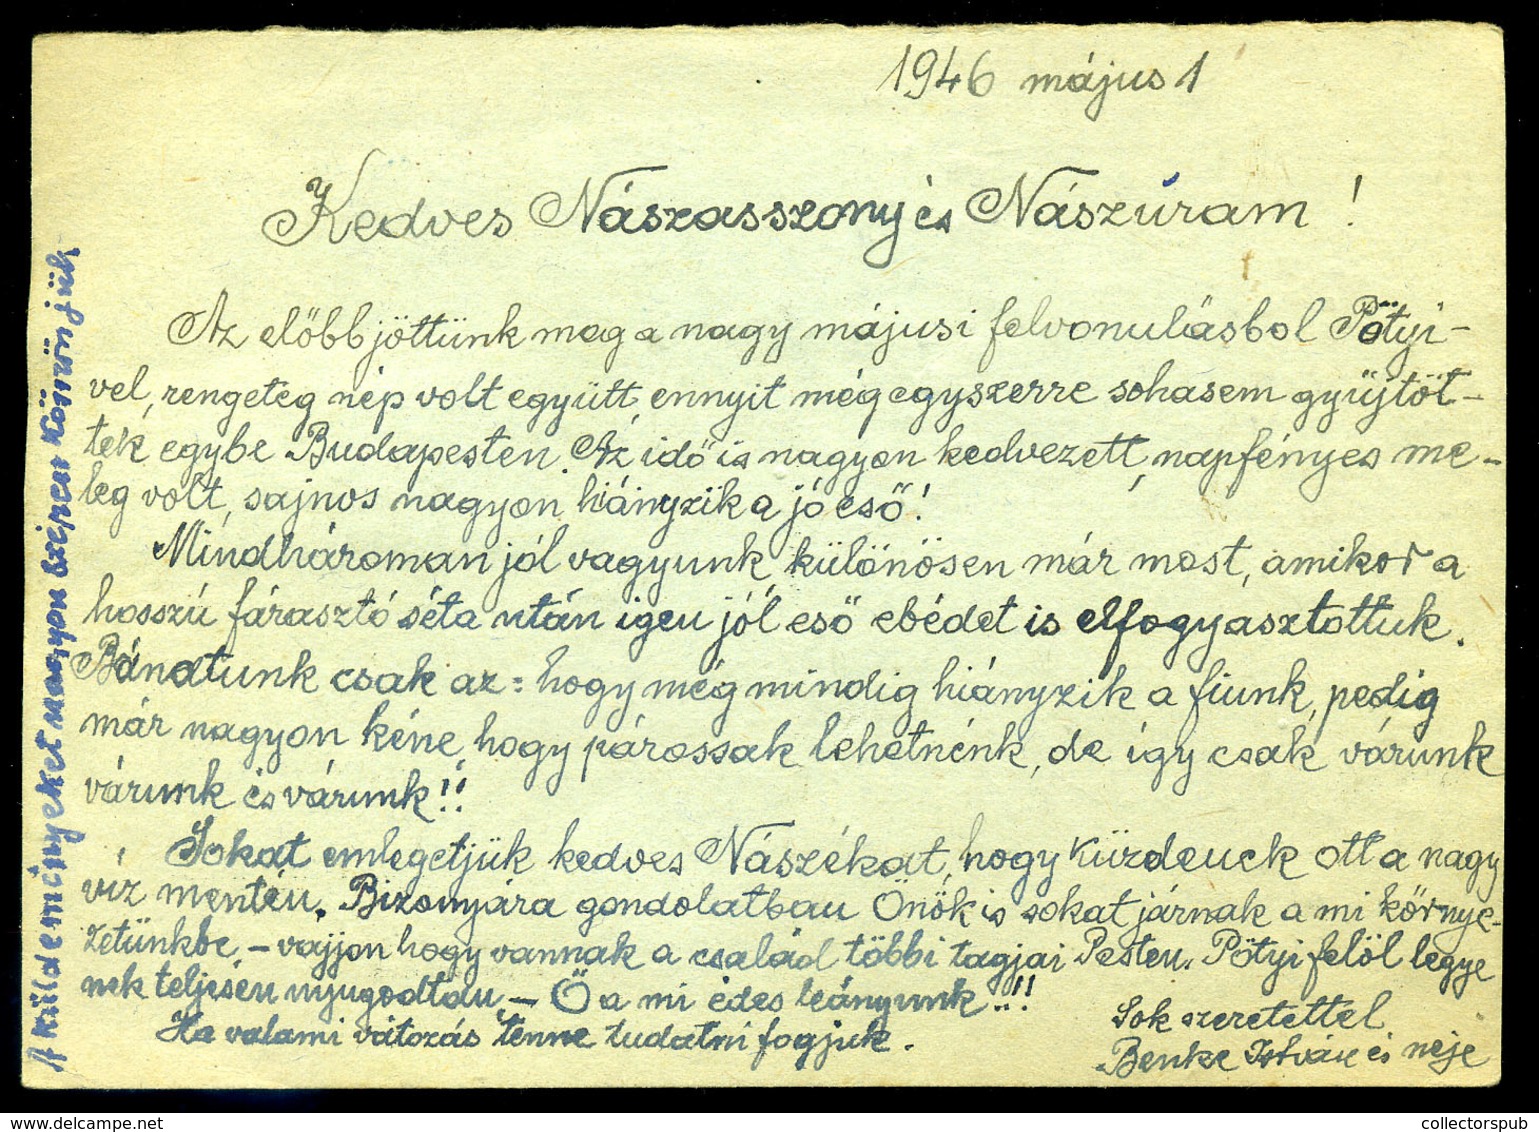 1946 május 1
Kedves Nászasszony és Nászúram!
Az előbb jöttünk meg a nagy májusi felvonulásbol Pötyi-
vel, rengeteg nép volt együtt, ennyit még egyszerre sohasem gyüjtöt-
tek egybe Budapesten. Az idő is nagyon kedvezett, napfényes me-
leg volt, sajnos nagyon hiányzik a jó eső!
Mindhároman jól vagyunk, különösen már most, amikor a
hosszú fárasztó séta után igen jól eső ebédet is elfogyasztottuk.
Bánatunk csak az: hogy még mindig hiányzik a fiunk, pedig
már nagyon kéne, hogy párossak lehetnénk, de így csak várunk
várunk és várunk!!
Sokat emlegetjük kedves Nászékat, hogy küzdenek ott a nagy
víz mentén. Bizonyára gondolatban Önök is sokat járnak a mi környe-
zetünkbe, - vajjon hogy vannak a család többi tagjai Pesten. Pötyi felöl legye
nek teljesen nyugodtan, - Ő a mi édes leányunk..!!
Ha valami vátozás lenne tudatni fogjuk.
Sok szeretettel
Benke István és neje
A küldeményeket nagyon szépen Köszönjük
collectorspub